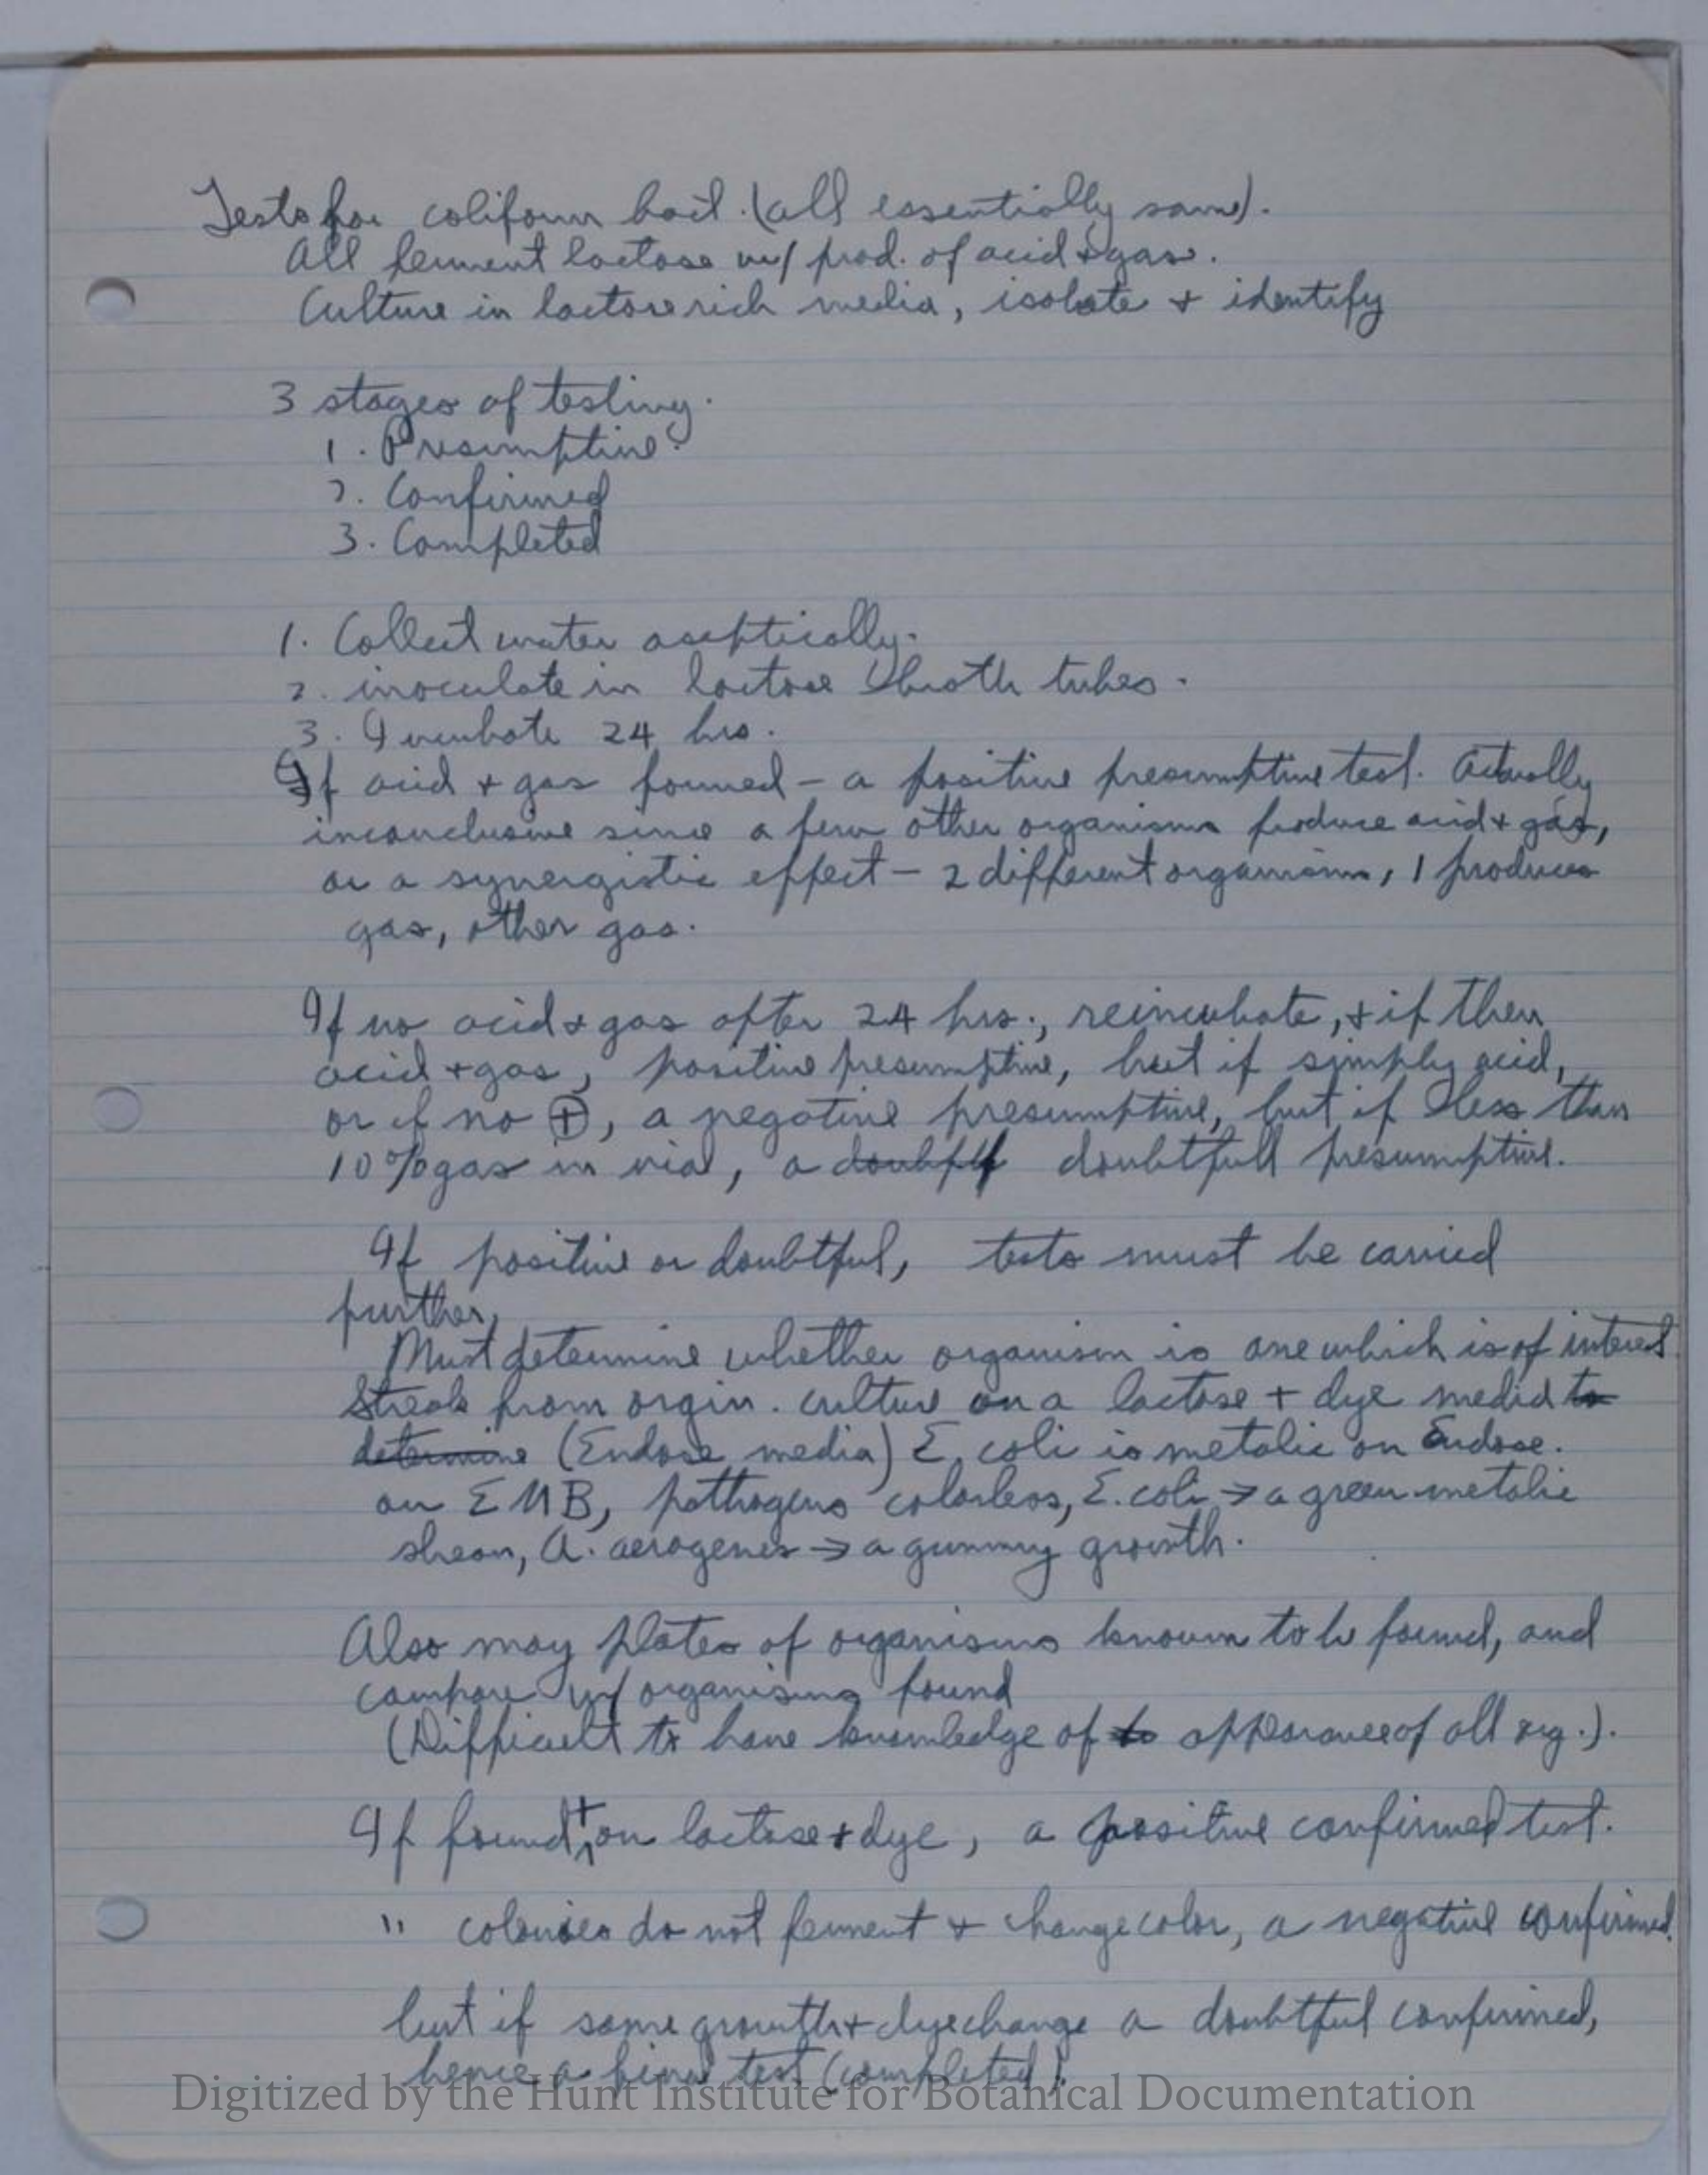 Tests for coliform bact. (all essentially same).
All ferment lactose w/ prod. of acid & gas.
Culture in lactose rich media, isolate + identify
3 stages of testing.
1. Presumptive.
2. Confirmed
3. Completed
1. Collect water aseptically.
2. inoculate in lactose broth tubes.
3. Incubate 24 hrs.
If acid + gas formed - a positive presumptive test. Actually
inconclusive since a few other organisms produce acid + gas,
or a synergistic effect - 2 different organisms, 1 produces
gas, other gas.
If no acid + gas after 24 hrs., reincubate, + if then
acid + gas, positive presumptive, but if simply acid,
or if no ⊕, a negative presumptive, but if less than
10% gas in vial, a doubtfull presumptive.
If positive or doubtful, tests must be carried
further.
Must determine whether organism is one which is of interest.
Streak from orgin. culture on a lactose + dye media to
determine (Endose media) E. coli is metalic on Endose.
on EMB, pathogens colorless, E. coli → a green metalic
shean, A. aerogenes → a gummy growth.
Also may plates of organisms known to be found, and
compare w/ organisms found
(Difficult to have knowledge of to appearance of all org.).
If found + on lactose + dye, a positive confirmed test.
" colonies do not ferment + change color, a negative confirmed.
but if some growth + dye change a doubtful confirmed,
hence a final test (completed).
Digitized by the Hunt Institute for Botanical Documentation